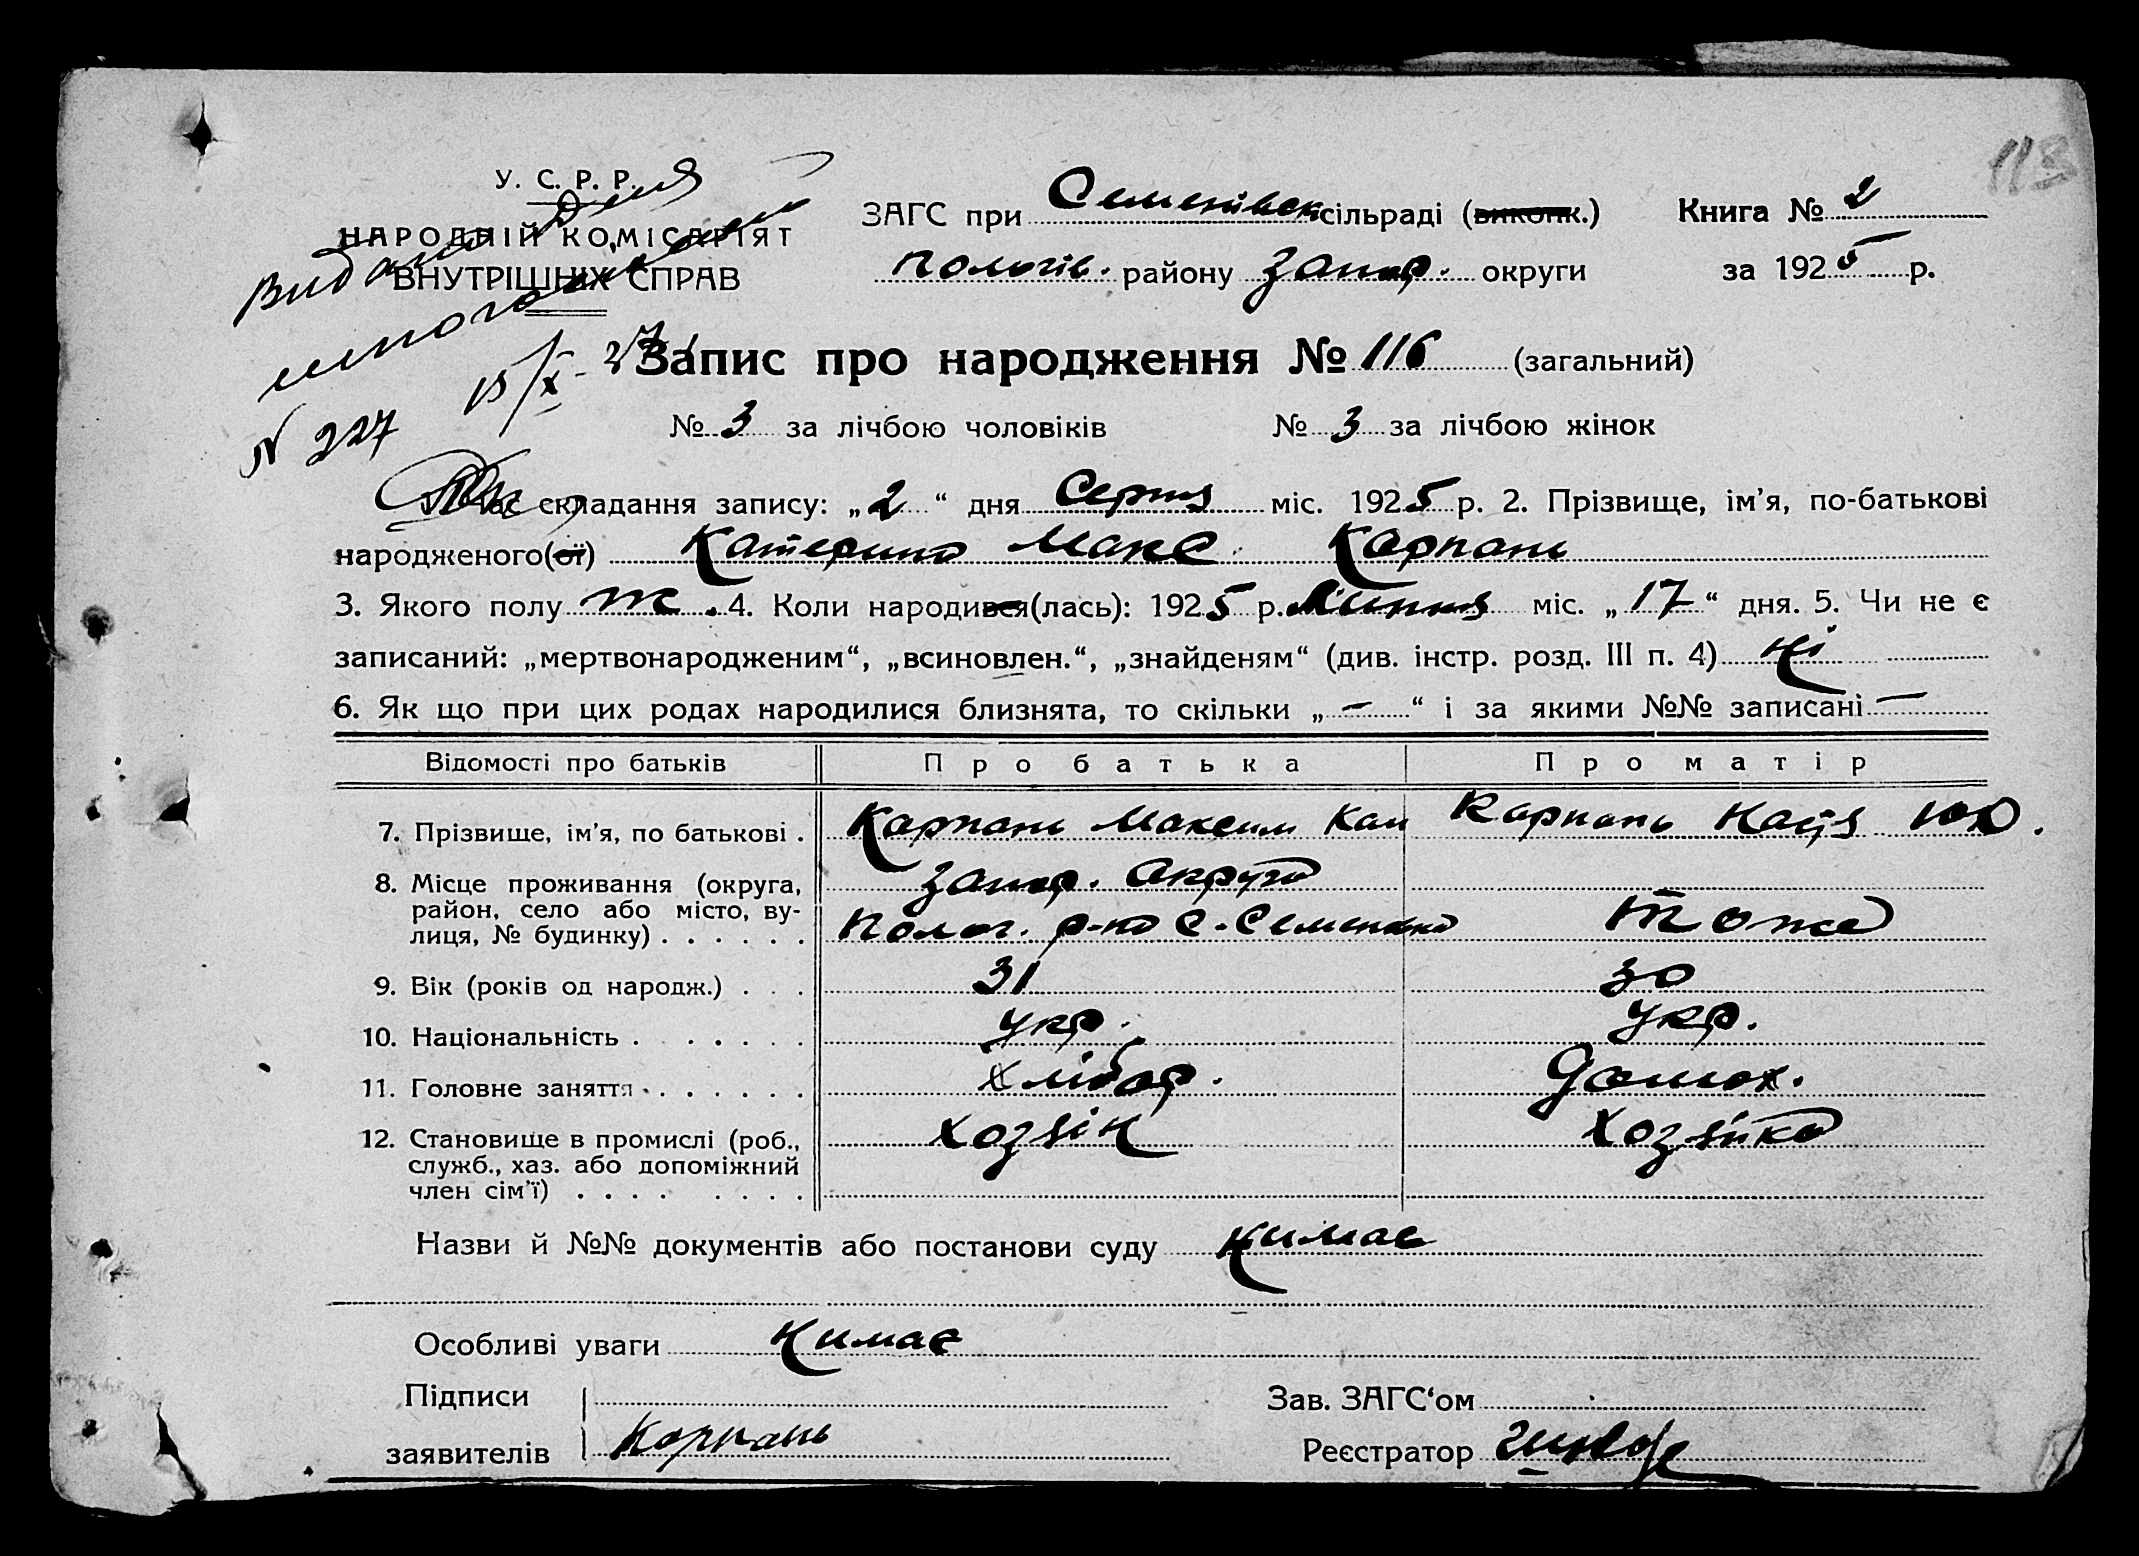 113
У. С. Р. Р.
НАРОДНІЙ КОМІСАРІЯТ
ВНУТРІШНІХ СПРАВ
Видана
15/X-27
N 227
ЗАГС при Семенівск сільраді (виконк.)
Пологів. району Запор. округи
Книга № 2
за 1925 р.
Запис про народження № 116 (загальний)
№ 3 за лічбою чоловіків № 3 за лічбою жінок
час складання запису: „2“ дня Серпня міс. 1925 р. 2. Прізвище, ім'я, по-батькові
народженого(ої) Катерина Макс. Карпань
3. Якого полу ж. 4. Коли народився(лась): 1925 р. Липня міс. „17“ дня. 5. Чи не є
записаний: „мертвонародженим“, „всиновлен.“, „знайденям“ (див. інстр. розд. III п. 4) Ні
6. Як що при цих родах народилися близнята, то скільки „—“ і за якими №№ записані —
Відомості про батьків Про батька Про матір
7. Прізвище, ім'я, по батькові . Карпань Максим Кан Карпань Надя
8. Місце проживання (округа, Запор. Округа
район, село або місто, ву-
лиця, № будинку) . . . . . . Полог. р-на С. Семенівка Тоже
9. Вік (років од народж.) . . . 31 30
10. Національність . . . . . . . Укр. Укр.
11. Головне заняття . . . . . . Хлібор. Домох.
12. Становище в промислі (роб., Хозяін Хозяйка
служб., хаз. або допоміжний
член сім'ї) . . . . . . . .
Назви й №№ документів або постанови суду Немає
Особливі уваги Немає
Підписи
заявителів Корпань
Зав. ЗАГС'ом
Реєстратор